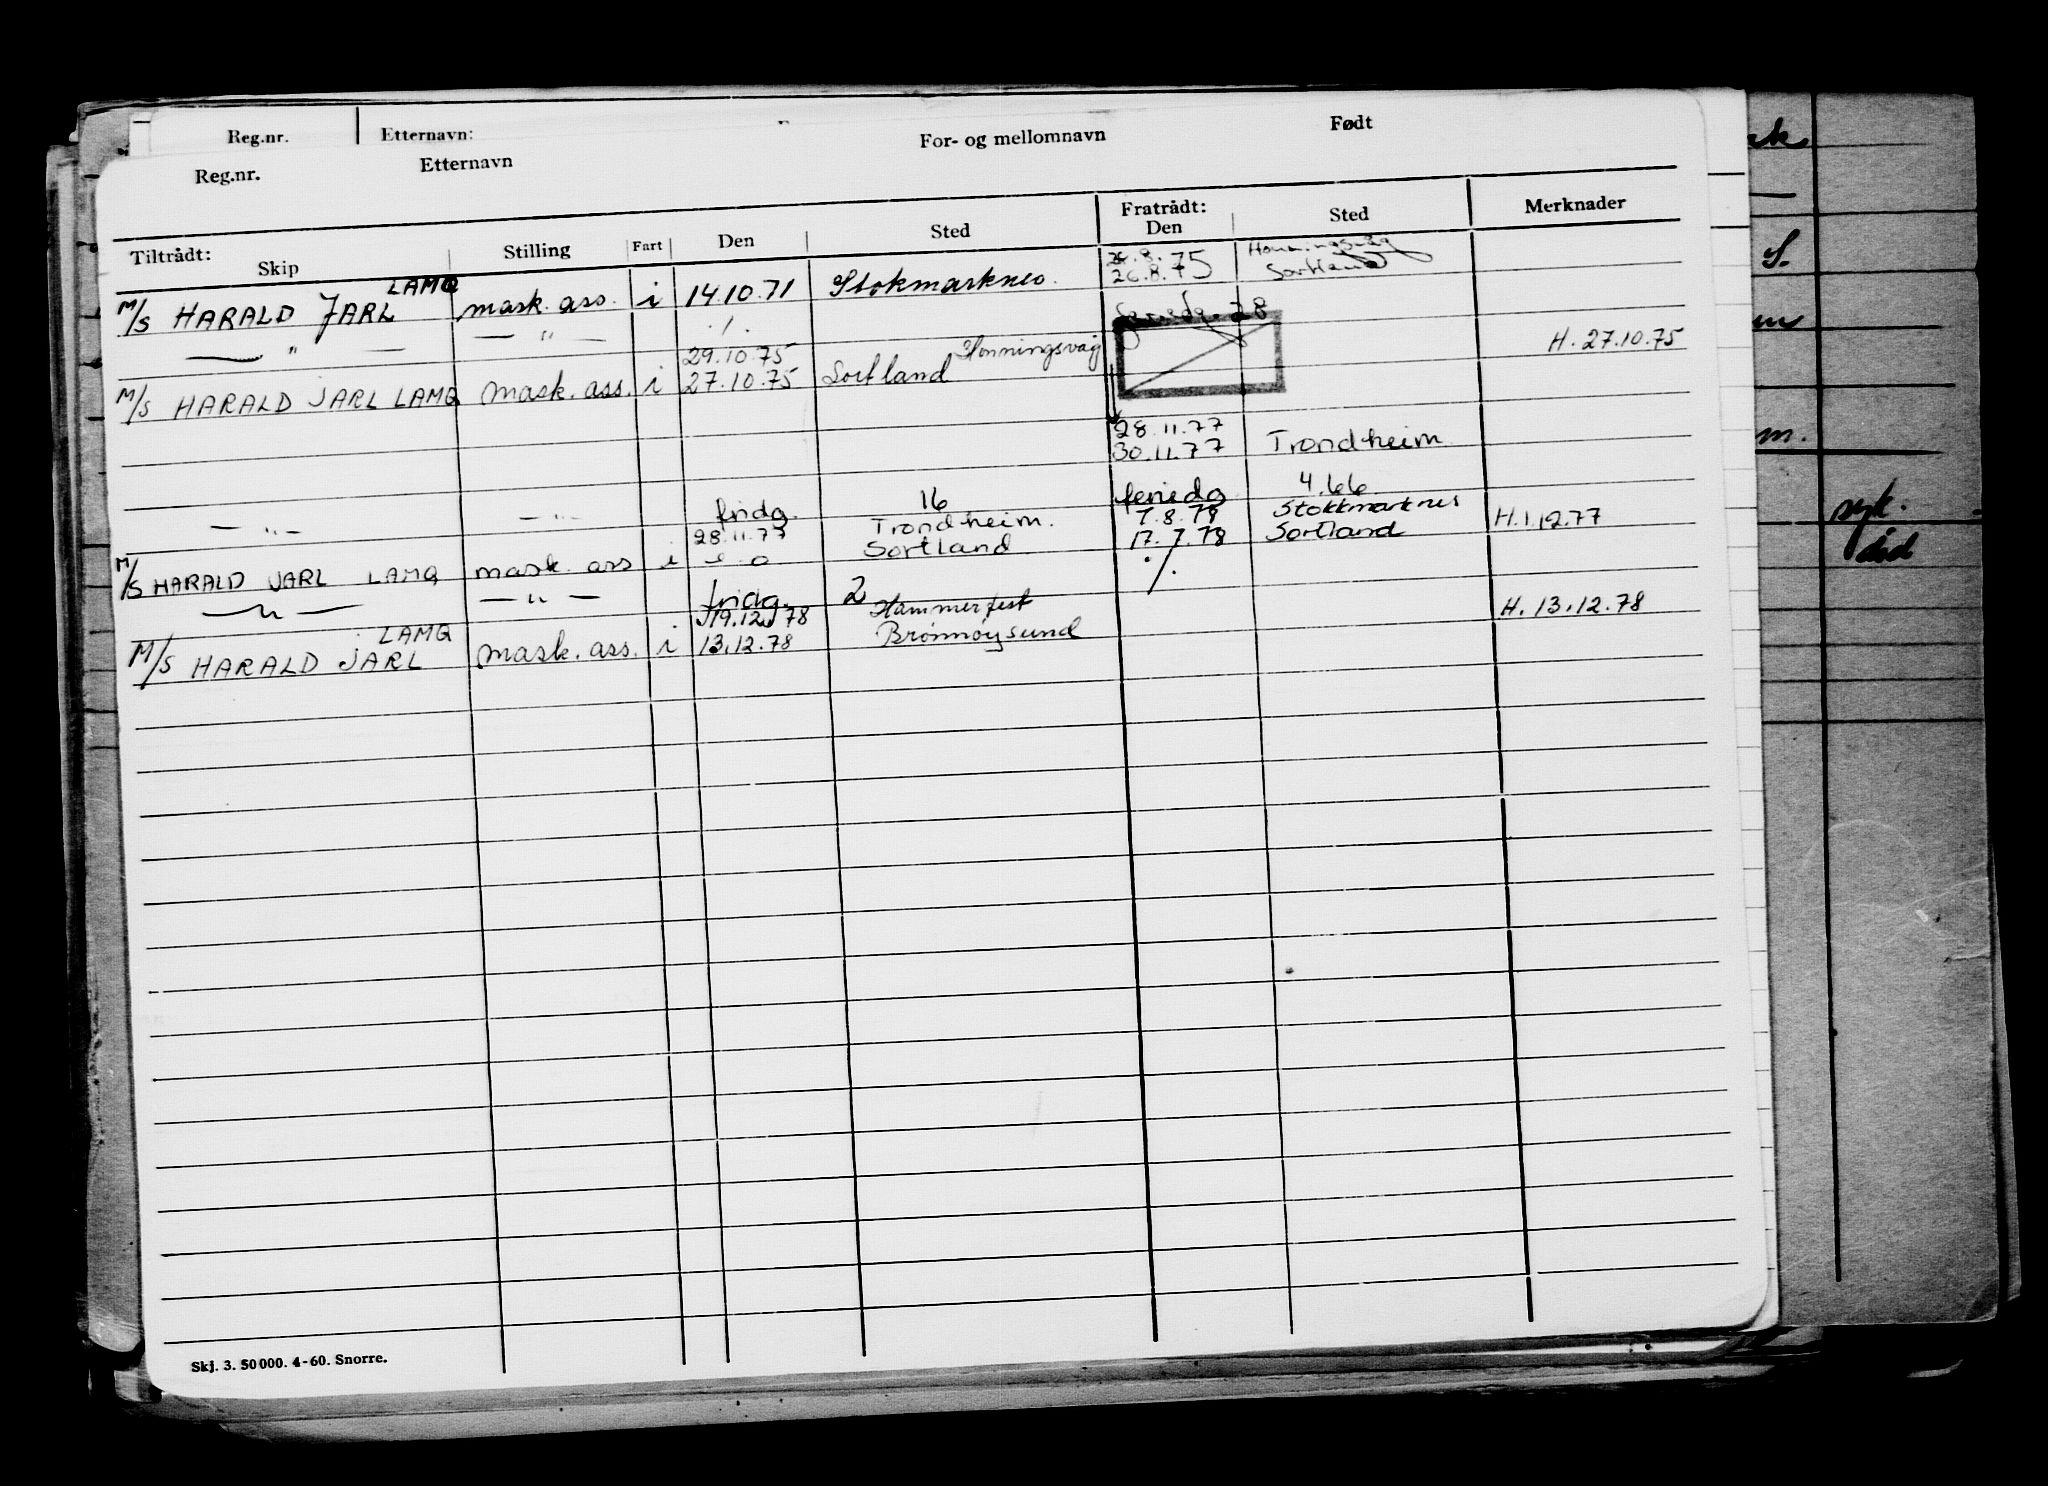 Reg.nr. Etternavn:
Reg.nr. Etternavn For- og mellomnavn Født
Tiltrådt: Skip Stilling Fart Den Sted Fratrådt: Den Sted Merknader
LAMQ 26.8.75 Honningsvåg
M/S HARALD JARL mask. ass. i 14.10.71 Stokmarknes. 26.8.75 Sortland
— " — — " — ./. 28
29.10.75 Honningsvåg H. 27.10.75
M/S HARALD JARL LAMQ mask. ass. i 27.10.75 Sortland
28.11.77
30.11.77 Trondheim
fridg. 16 feriedg. 4.66
— " — — " — 28.11.77 Trondheim. 7.8.78 Stokkmarknes
M/S HARALD JARL LAMQ mask. ass i Sortland 17.7.78 Sortland H.1.12.77
— " — — " — fridg. 2 ./.
LAMQ 19.12.78 Hammerfest H. 13.12.78
M/S HARALD JARL mask. ass. i 13.12.78 Brønnøysund
Skj. 3. 50 000. 4-60. Snorre.
S.
m.
syk.